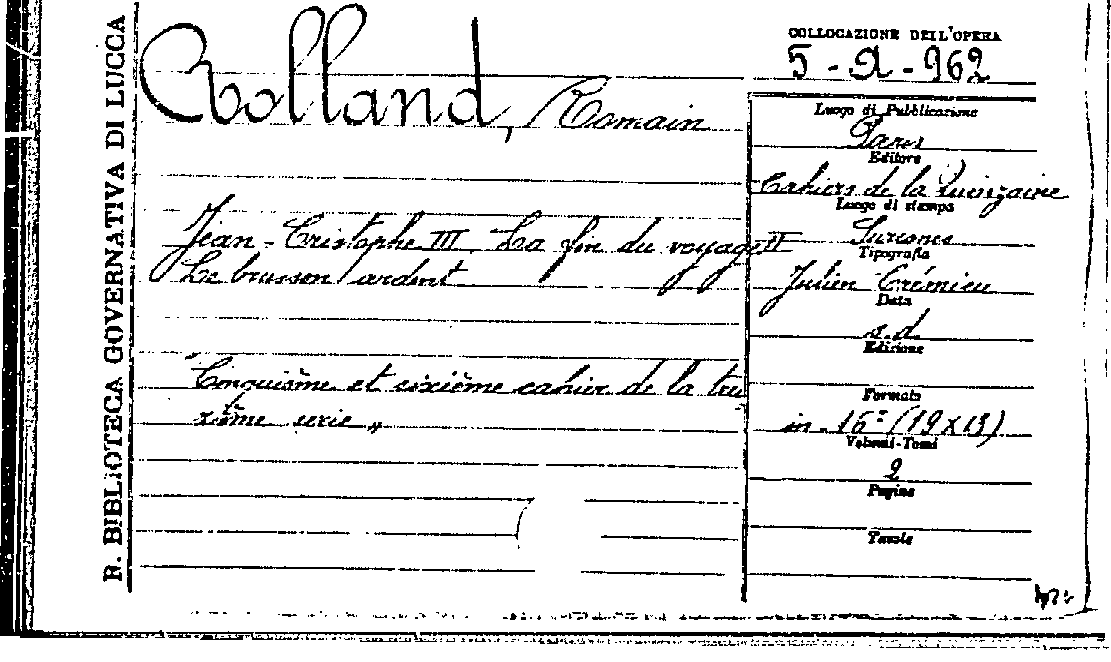 R. BIBLIOTECA GOVERNATIVA DI LUCCA
Rolland, Romain
Jean-Cristophe III. La fin du voyage II
Le buisson ardent
Cinquième et sixième cahier de la trei
zième serie „
COLLOCAZIONE DELL'OPERA
5-Q-962
Luogo di Pubblicazione
Paris
Editore
Cahiers de la Quinzaine
Luogo di stampa
Suresnes
Tipografia
Julien Crémieu
Data
s.d.
Edizione
Formato
in-16° (19x13)
Volumi-Tomi
2
Pagine
Tavole